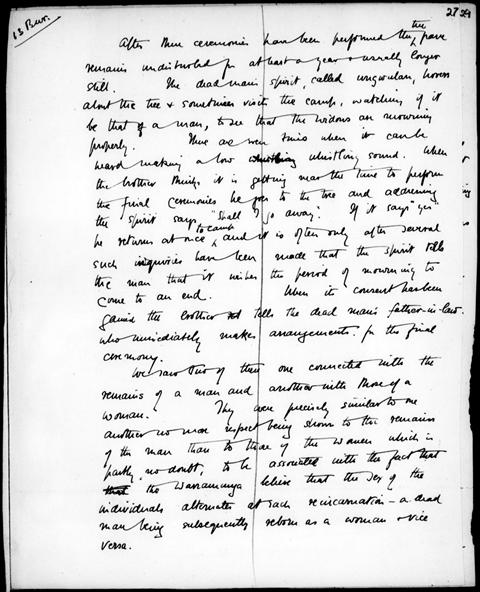 13 Bur.
27 29
After these ceremonies have been performed the grave
remains undisturbed for at least a year & usually longer
still. The dead man's spirit, called ungwulan, hovers
about the tree & sometimes visits the camp, watching, if it
be that of a man, to see that the widows are mourning
properly. There are even times when it can be
heard making a low whistling sound. When
the brother thinks it is getting near the time to perform
the final ceremonies he goes to the tree and addressing
the spirit says "Shall I go away". If it says "yes"
he returns at once to camp, and it is often only after several
such inquiries have been made that the spirit tells
the man that it wishes the period of mourning to
come to an end. When its consent has been
gained the brother tells the dead man's father-in-law
who immediately makes arrangements for the final
ceremony.
We saw two of them one connected with the
remains of a man and another with those of a
woman. They were precisely similar to one
another no more respect being shown to the remains
of the man than to those of the woman which is
partly, no doubt, to be associated with the fact that
the Warramunga believe that the sex of the
individuals alternates at each reincarnation – a dead
man being subsequently reborn as a woman & vice
versa.